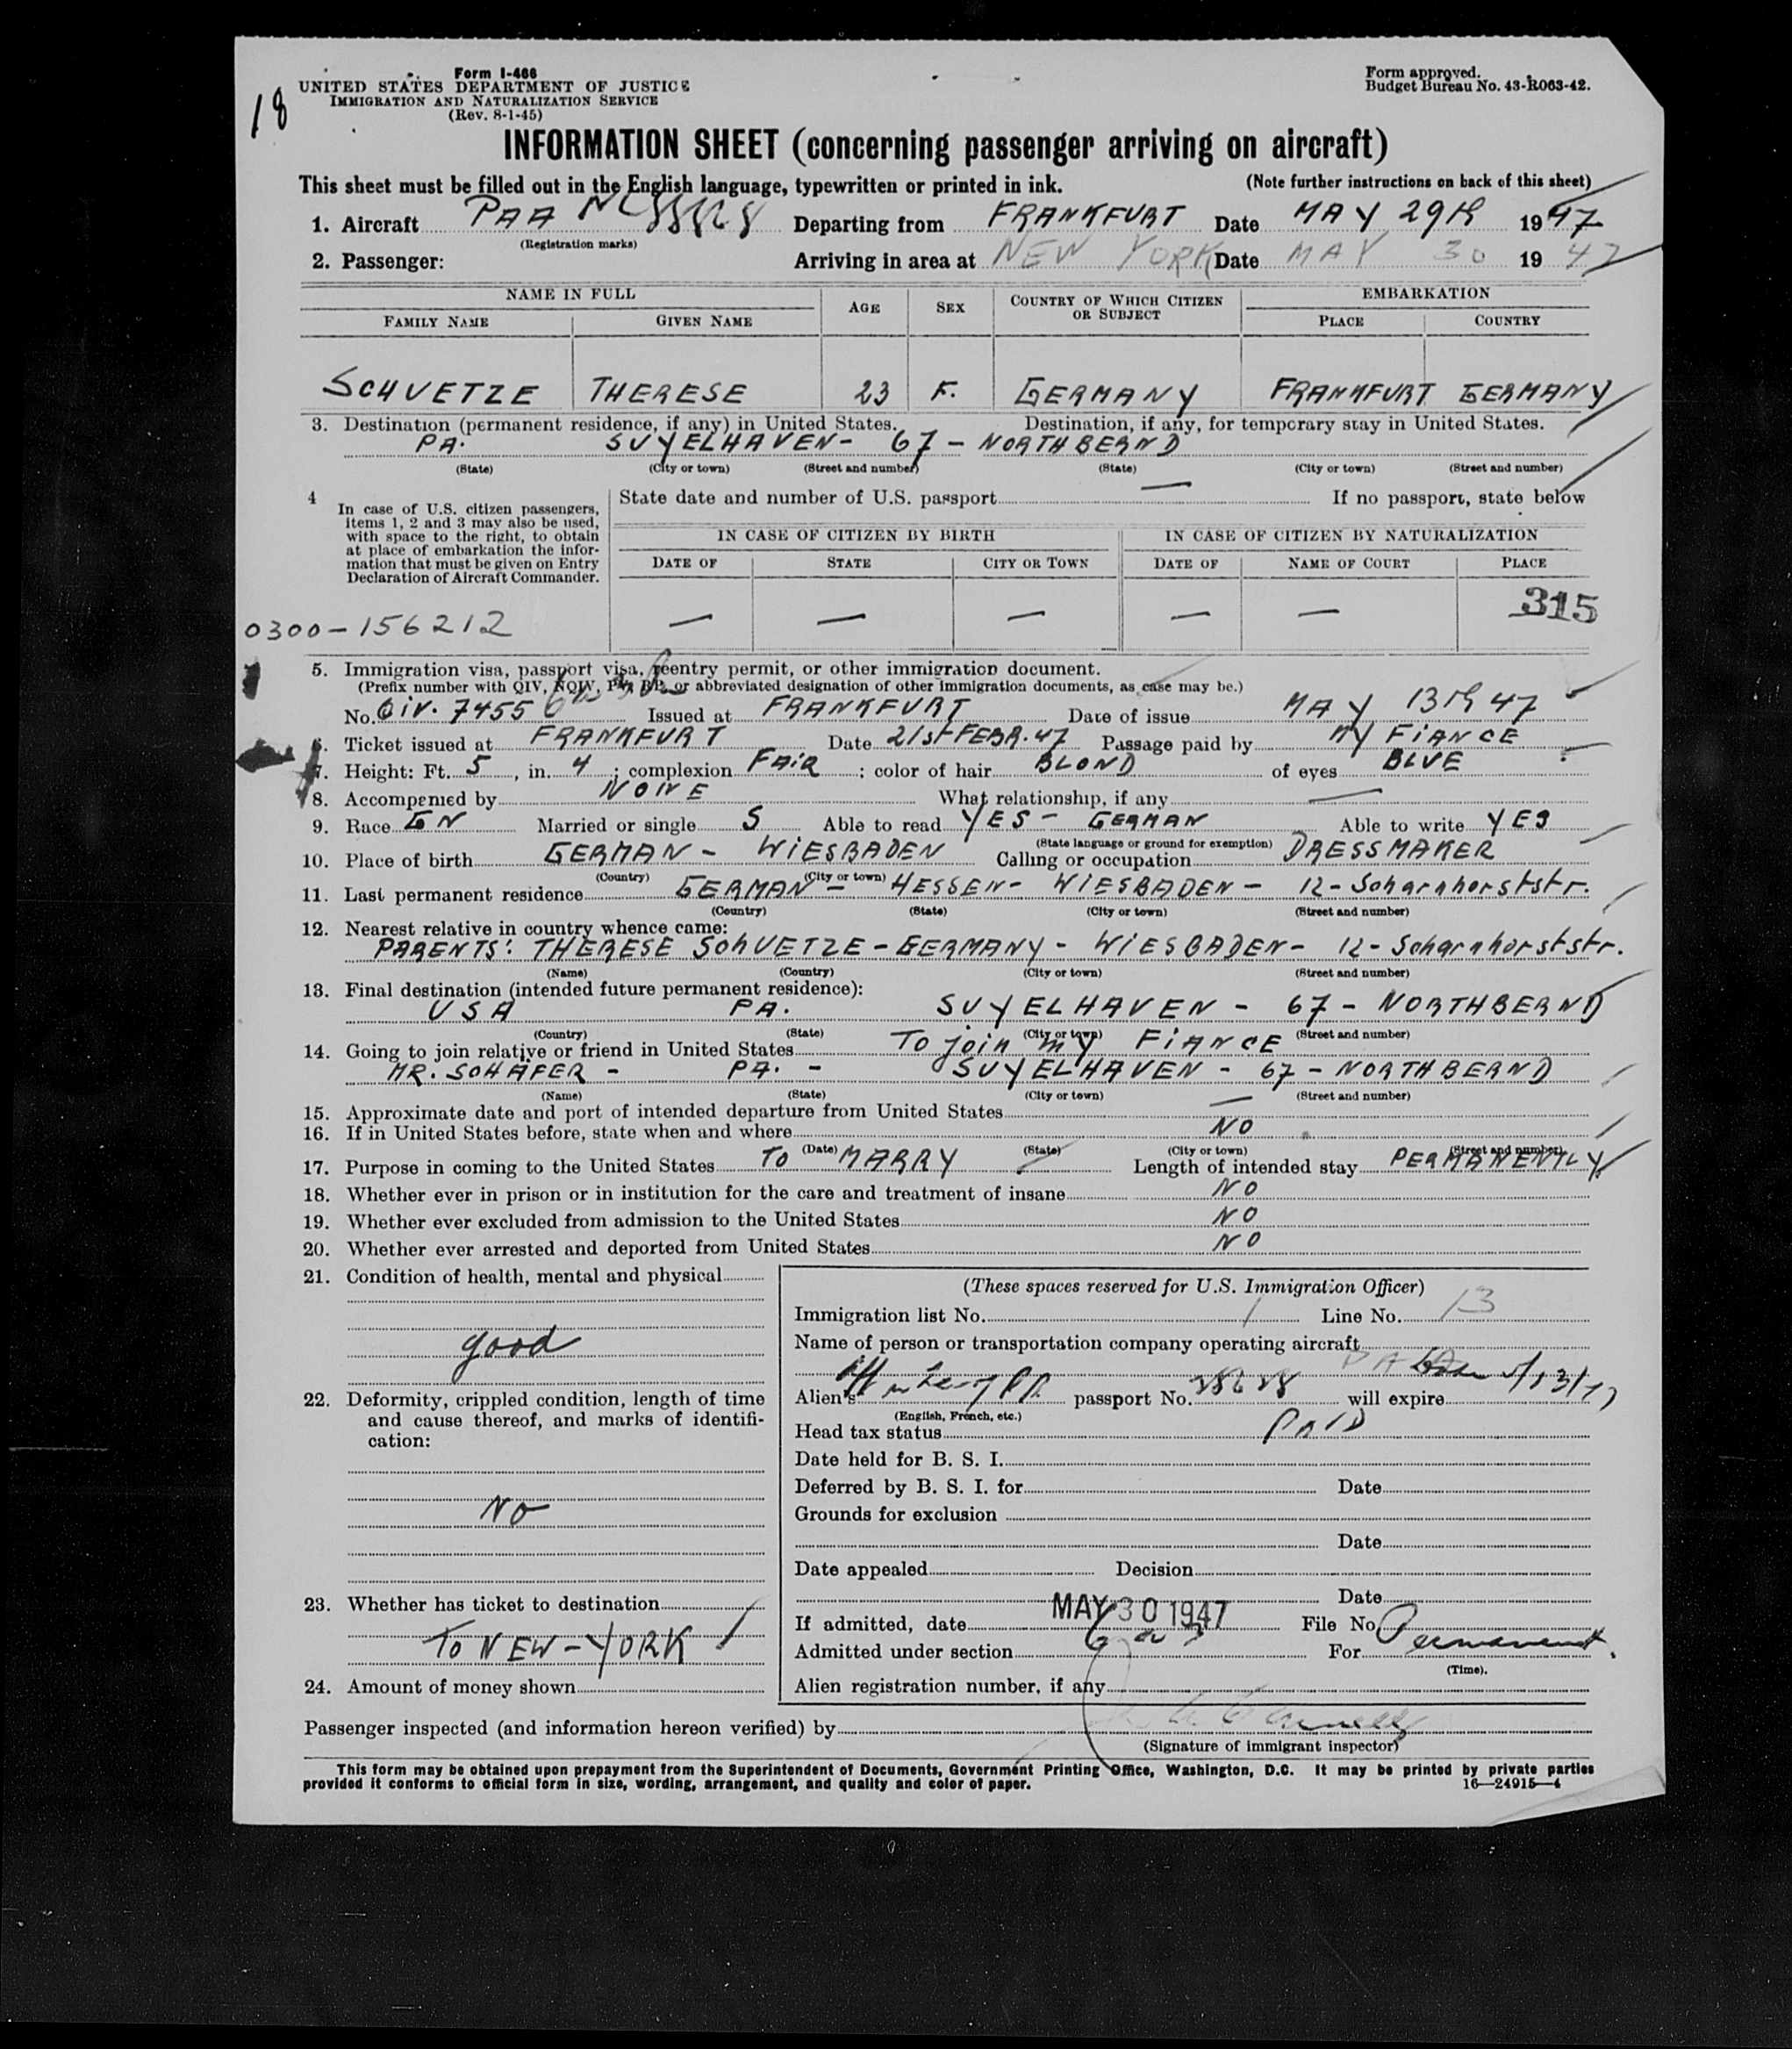 18
Form I-466
UNITED STATES DEPARTMENT OF JUSTICE
IMMIGRATION AND NATURALIZATION SERVICE
(Rev. 8-1-45)
Form approved.
Budget Bureau No. 43-R063-42.
INFORMATION SHEET (concerning passenger arriving on aircraft)
This sheet must be filled out in the English language, typewritten or printed in ink. (Note further instructions on back of this sheet)
1. Aircraft PAA Departing from FRANKFURT Date MAY 29th 1947
(Registration marks)
2. Passenger: Arriving in area at NEW YORK Date MAY 30 1947
NAME IN FULL AGE SEX COUNTRY OF WHICH CITIZEN OR SUBJECT EMBARKATION
FAMILY NAME GIVEN NAME PLACE COUNTRY
SCHUETZE THERESE 23 F. GERMANY FRANKFURT GERMANY
3. Destination (permanent residence, if any) in United States. Destination, if any, for temporary stay in United States.
PA. SUYELHAVEN - 67 - NORTHBERND
(State) (City or town) (Street and number) (State) (City or town) (Street and number)
4 In case of U.S. citizen passengers, items 1, 2 and 3 may also be used, with space to the right, to obtain at place of embarkation the information that must be given on Entry Declaration of Aircraft Commander.
State date and number of U.S. passport — If no passport, state below
IN CASE OF CITIZEN BY BIRTH IN CASE OF CITIZEN BY NATURALIZATION
DATE OF STATE CITY OR TOWN DATE OF NAME OF COURT PLACE
— — — — — 315
0300-156212
5. Immigration visa, passport visa, reentry permit, or other immigration document.
(Prefix number with QIV, NQIV, PV, RP, or abbreviated designation of other immigration documents, as case may be.)
No. QiV. 7455 Issued at FRANKFURT Date of issue MAY 13th 47
6. Ticket issued at FRANKFURT Date 21st FEBR. 47 Passage paid by MY FIANCE
7. Height: Ft. 5, in. 4; complexion FAIR; color of hair BLOND of eyes BLUE
8. Accompanied by NONE What relationship, if any —
9. Race GN Married or single S Able to read YES - GERMAN Able to write YES
(State language or ground for exemption)
10. Place of birth GERMAN - WIESBADEN Calling or occupation DRESSMAKER
(Country) (City or town)
11. Last permanent residence GERMAN - HESSEN - WIESBADEN - 12 - Scharnhorststr.
(Country) (State) (City or town) (Street and number)
12. Nearest relative in country whence came:
PARENTS: THERESE SCHUETZE - GERMANY - WIESBADEN - 12 - Scharnhorststr.
(Name) (Country) (City or town) (Street and number)
13. Final destination (intended future permanent residence):
USA PA. SUYELHAVEN - 67 - NORTHBERND
(Country) (State) (City or town) (Street and number)
14. Going to join relative or friend in United States To join my FIANCE
MR. SCHAFER - PA. - SUYELHAVEN - 67 - NORTHBERND
(Name) (State) (City or town) (Street and number)
15. Approximate date and port of intended departure from United States —
16. If in United States before, state when and where NO
(Date) (State) (City or town) (Street and number)
17. Purpose in coming to the United States TO MARRY Length of intended stay PERMANENTLY
18. Whether ever in prison or in institution for the care and treatment of insane NO
19. Whether ever excluded from admission to the United States NO
20. Whether ever arrested and deported from United States NO
21. Condition of health, mental and physical
good
22. Deformity, crippled condition, length of time and cause thereof, and marks of identification:
NO
23. Whether has ticket to destination
TO NEW-YORK
24. Amount of money shown
(These spaces reserved for U.S. Immigration Officer)
Immigration list No. 1 Line No. 13
Name of person or transportation company operating aircraft
Alien's passport No. 28628 will expire
(English, French, etc.)
Head tax status PAID
Date held for B. S. I.
Deferred by B. S. I. for Date
Grounds for exclusion
Date
Date appealed Decision
Date
If admitted, date MAY 30 1947 File No.
Admitted under section For Permanent
(Time).
Alien registration number, if any
Passenger inspected (and information hereon verified) by
(Signature of immigrant inspector)
This form may be obtained upon prepayment from the Superintendent of Documents, Government Printing Office, Washington, D.C. It may be printed by private parties
provided it conforms to official form in size, wording, arrangement, and quality and color of paper. 16—24915-4